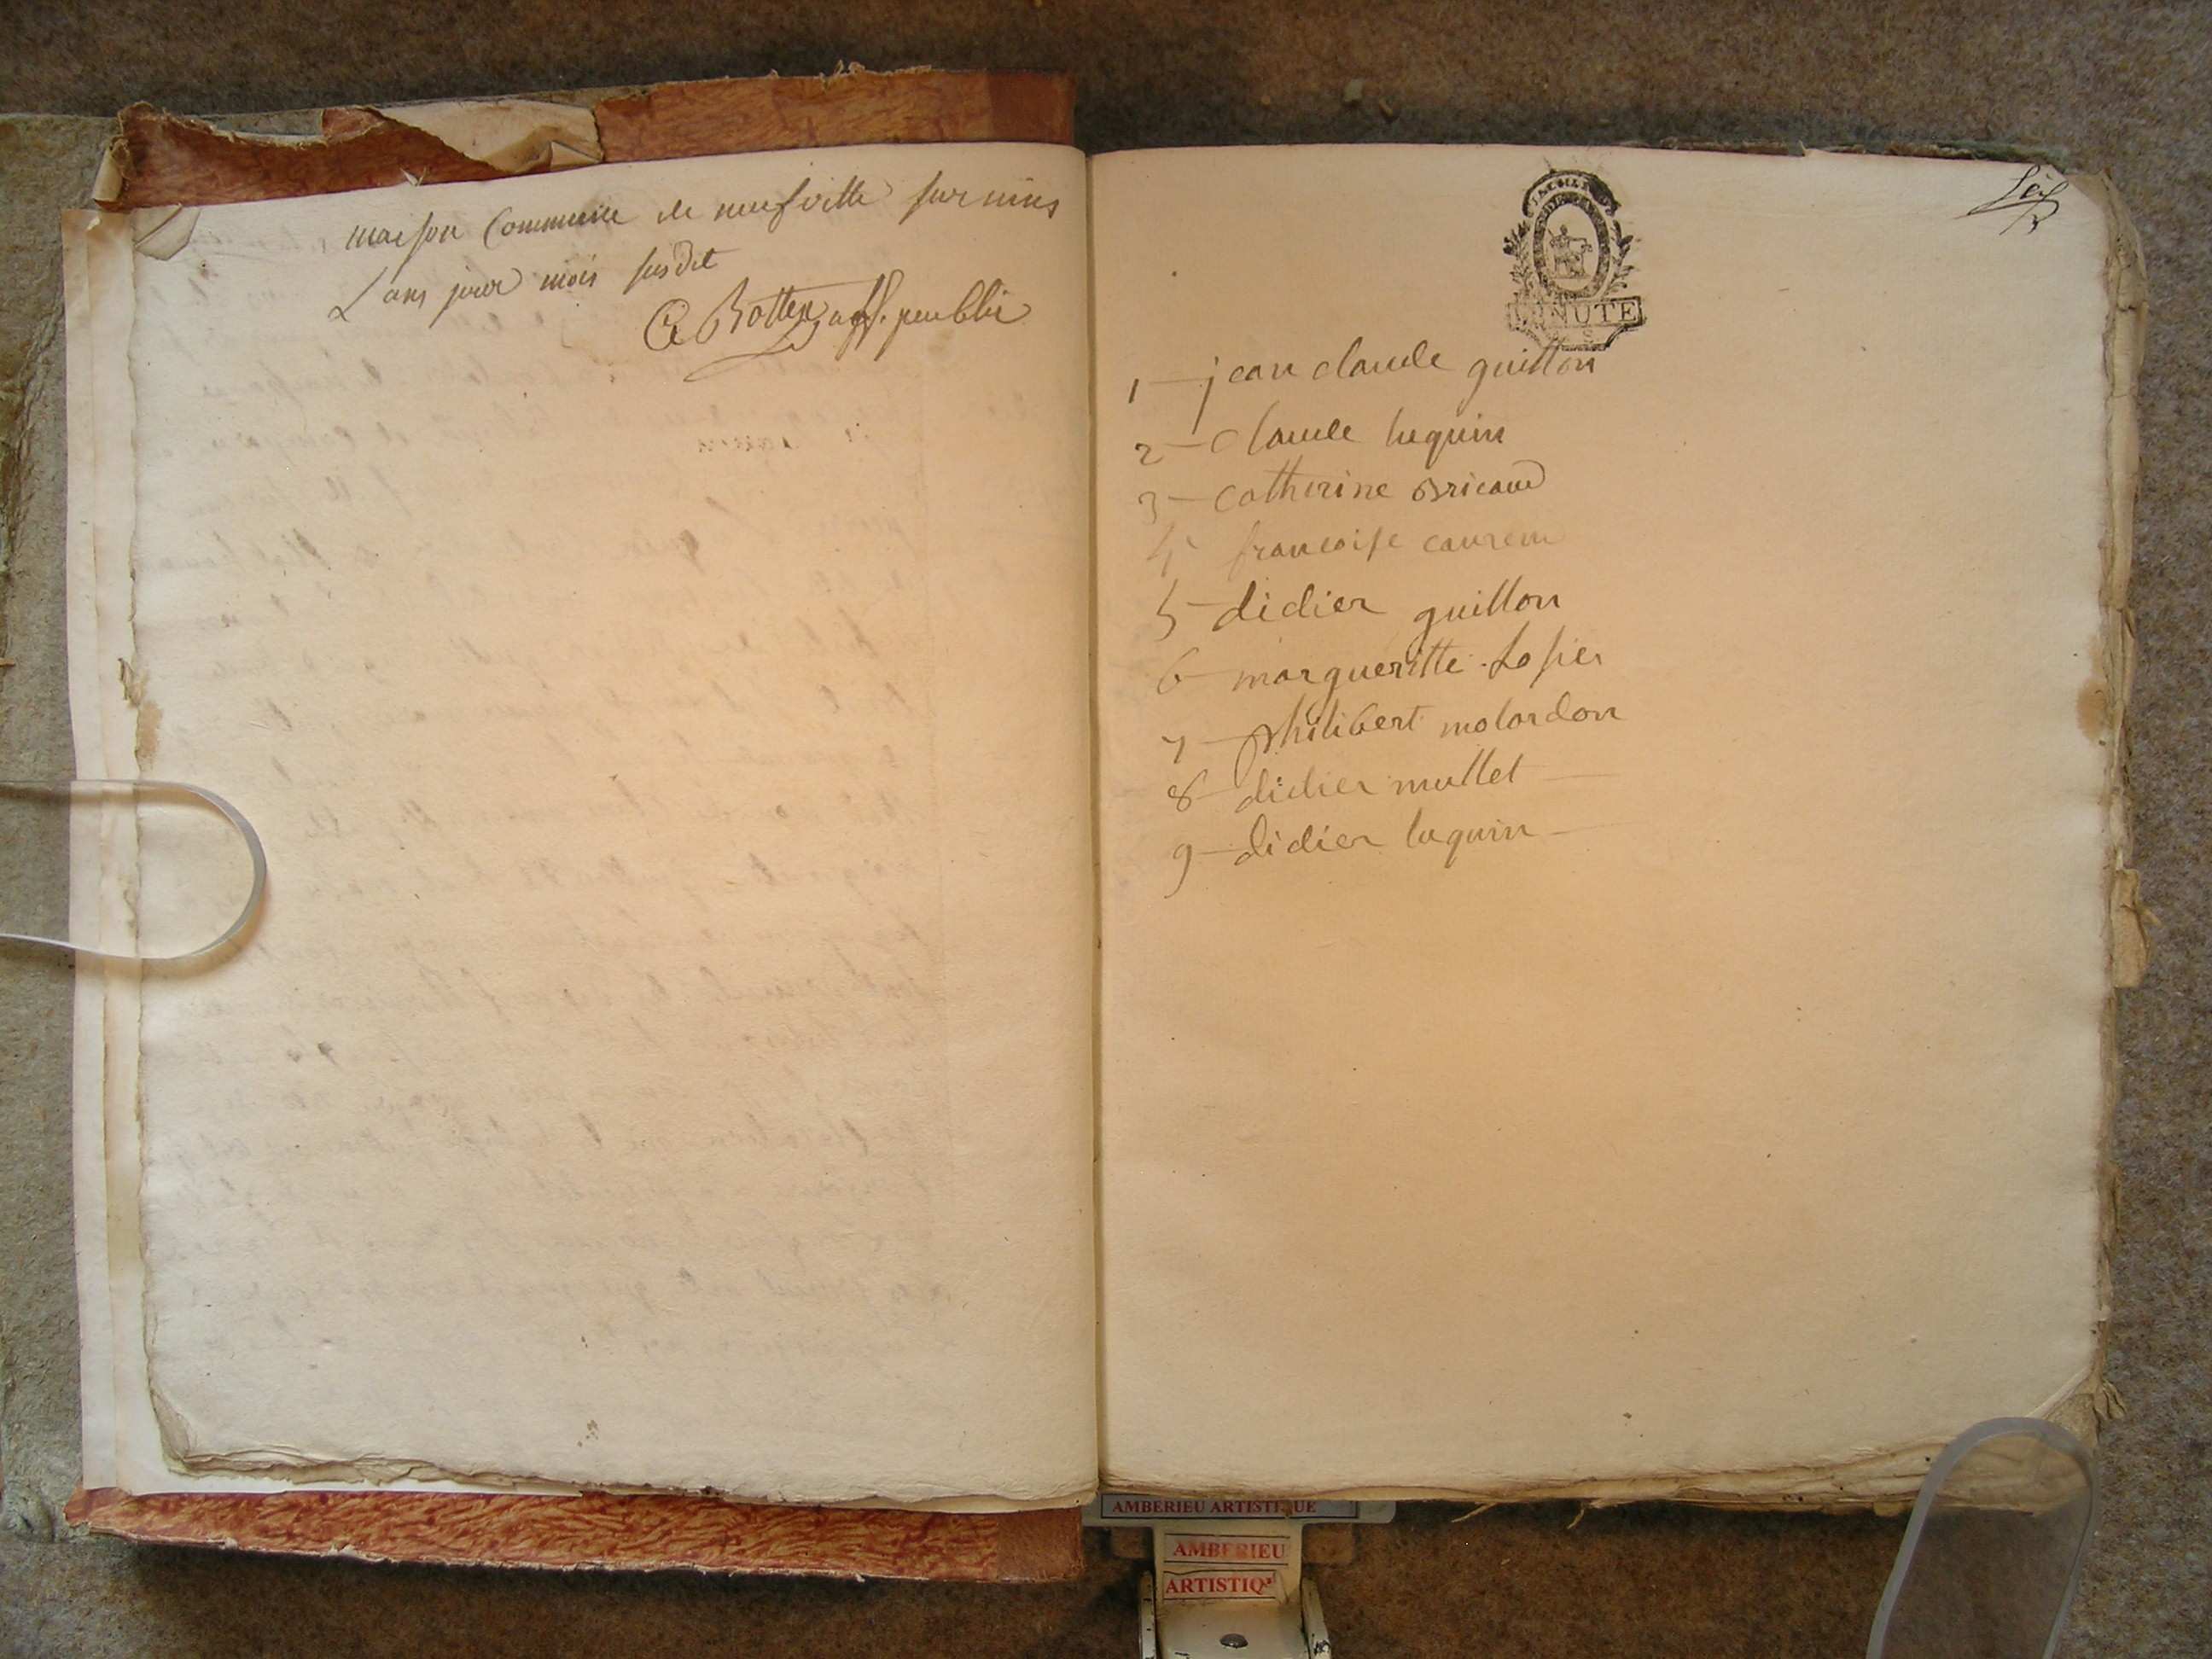 maison Commune de neufville sur nins
L ans jour mois susdit
C Bottex off. peublic
MINUTE
1 — jean claude guillon
2 — Claude luquin
3 — Catherine Bricaud
4 francoise
5 — didier guillon
6 — margueritte Losier
7 — philibert molardon
8 — didier mullet —
9 — didier luquin —
AMBERIEU ARTISTIQUE
AMBERIEU
ARTISTIQ